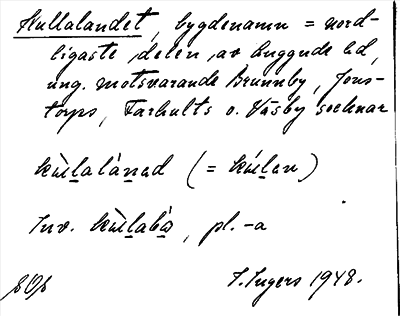 Kullalandet, bygdenamn = nord-
ligaste delen av Luggude hd,
ung. motsvarande Brunnby, Jons-
torps, Farhults o. Väsby socknar
kùl̲alàn̲ad (= kúl̲an)
Inv. kùl̲abò̲, pl. -a
I. Ingers 1948.